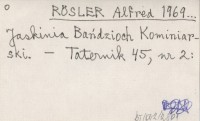 RÖSLER Alfréd 1969...
Jaskinia Bańdzioch Kominiar-
ski. - Taternik 45, nr 2: